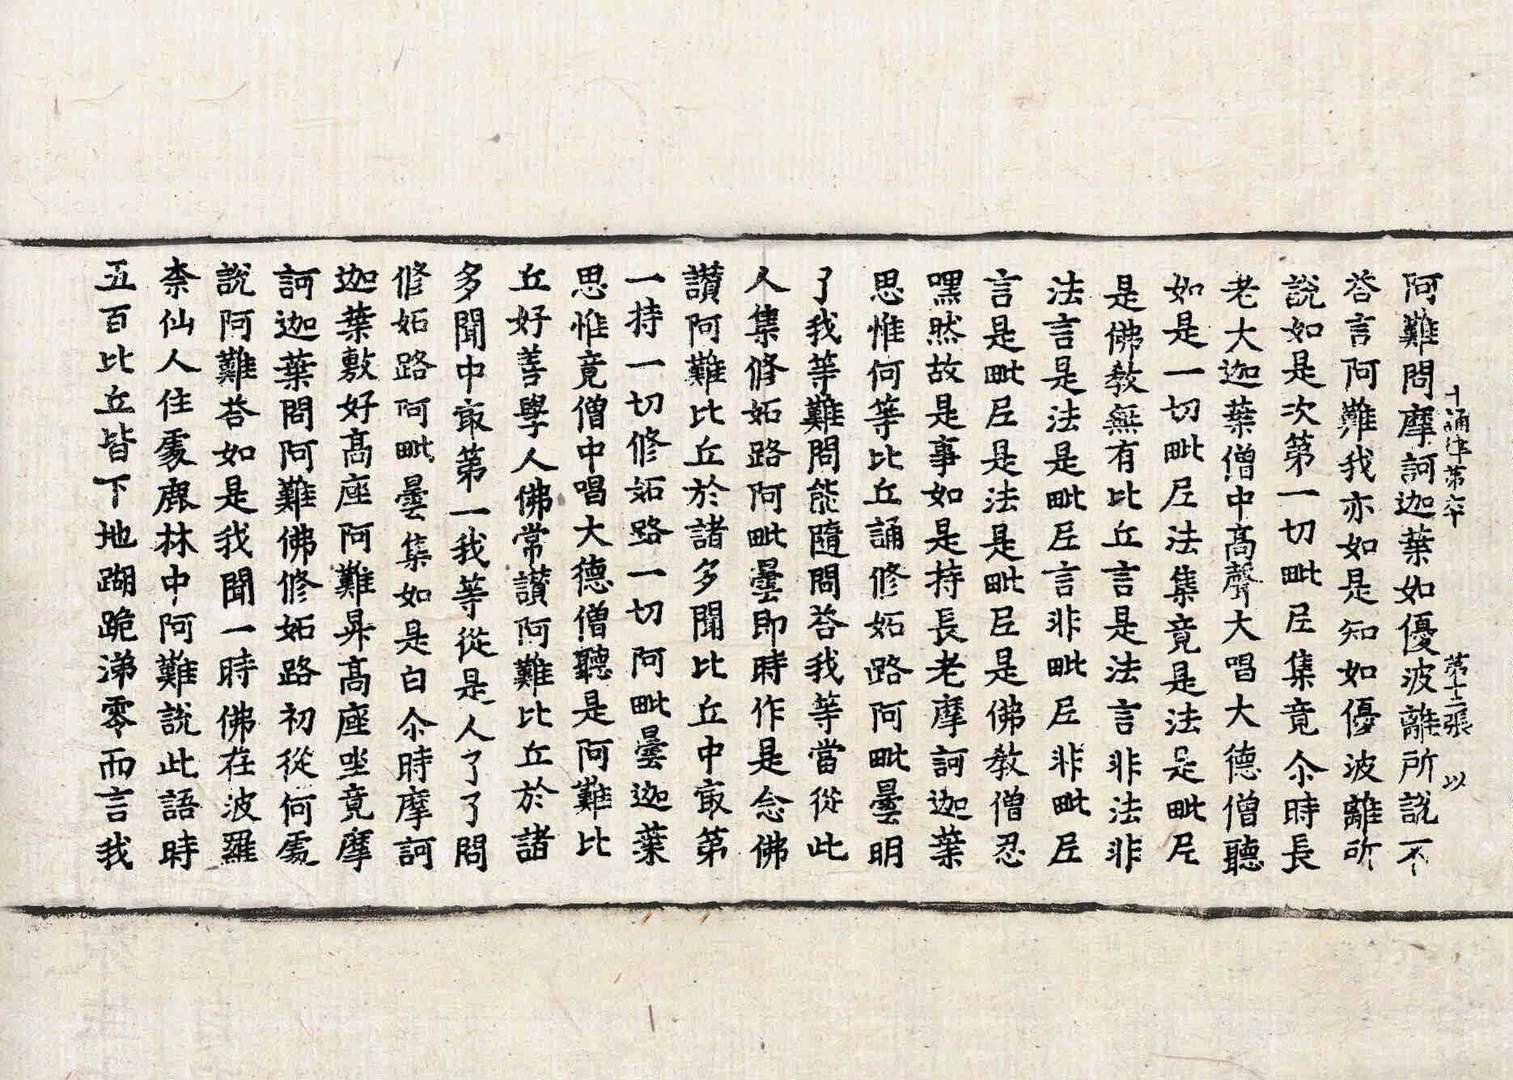 阿難問摩訶迦葉如優波離所說不
十誦律第六十　第十二張　以
荅言阿難我亦如是知如優波離所
說如是次第一切毗尼集竟尒時長
老大迦葉僧中高聲大唱大德僧聽
如是一切毗尼法集竟是法是毗尼
是佛教無有比丘言是法言非法非
法言是法是毗尼言非毗尼非毗尼
言是毗尼是法是毗尼是佛教僧忍
嘿然故是事如是持長老摩訶迦葉
思惟何等比丘誦修妬路阿毗曇明
了我等難問能隨問荅我等當從此
人集修妬路阿毗曇即時作是念佛
讚阿難比丘於諸多聞比丘中㝡第
一持一切修妬路一切阿毗曇迦葉
思惟竟僧中唱大德僧聽是阿難比
丘好善學人佛常讃阿難比丘於諸
多聞中㝡第一我等從是人了了問
修妬路阿毗曇集如是白尒時摩訶
迦葉敷好高座阿難昇高座坐竟摩
訶迦葉問阿難佛修妬路初從何處
說阿難荅如是我聞一時佛在波羅
柰仙人住處鹿林中阿難說此語時
五百比丘皆下地蹦跪涕零而言我